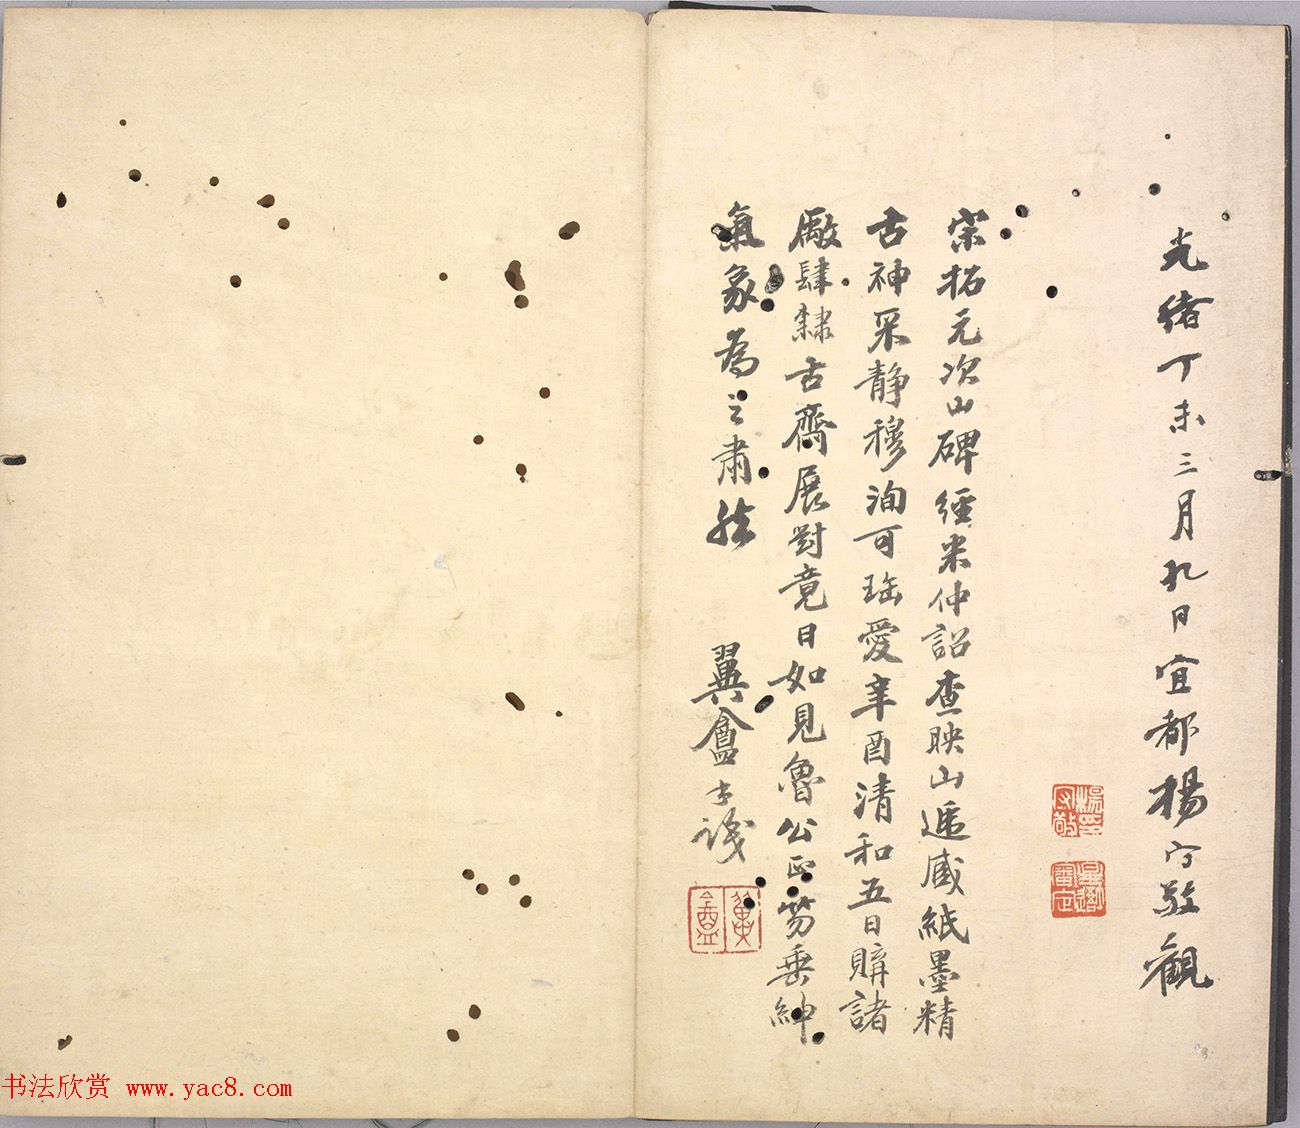 光緒丁未三月九日宜都楊守敬觀
宋拓元次山碑經米仲詔查映山遞藏紙墨精
古神采靜穆洵可珤愛辛酉清和五日購諸
廠肆隸古齋展對竟日如見魯公正笏垂紳
氣象為之肅然
翼盦識
楊守敬印
星吾審定
翼盦
书法欣赏 www.yac8.com